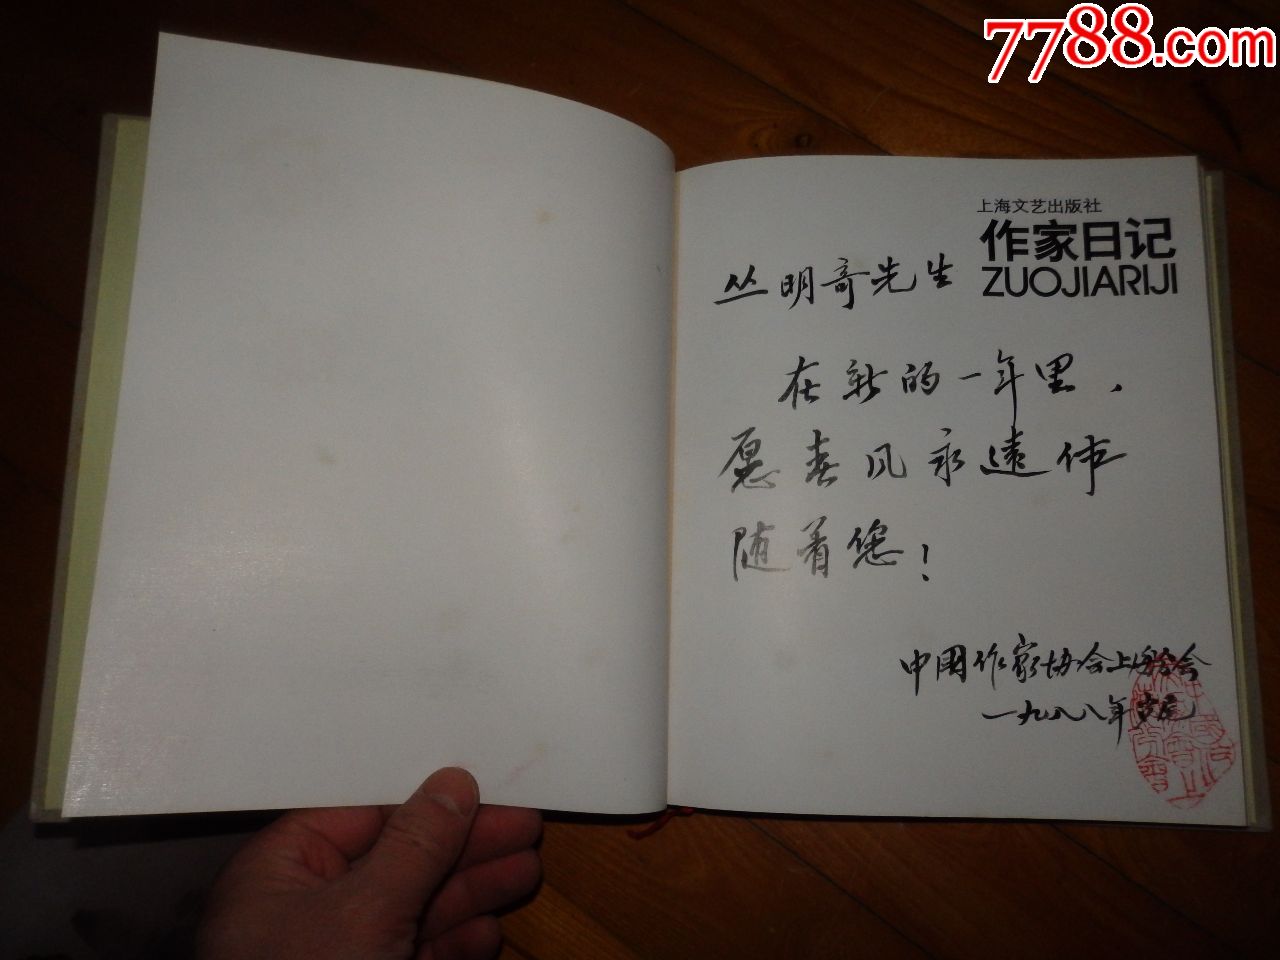 7788.com
上海文艺出版社
作家日记
ZUOJIARIJI
丛明哥先生
在新的一年里，
愿春风永遠伴
随着您！
中国作家协会上海分会
一九八八年岁尾